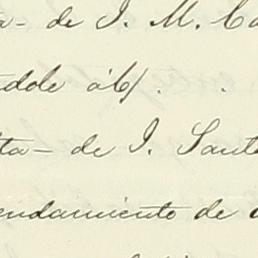 a- de J. M. Ca
dole á b/. .
ta- de J. Sant
endamiento de